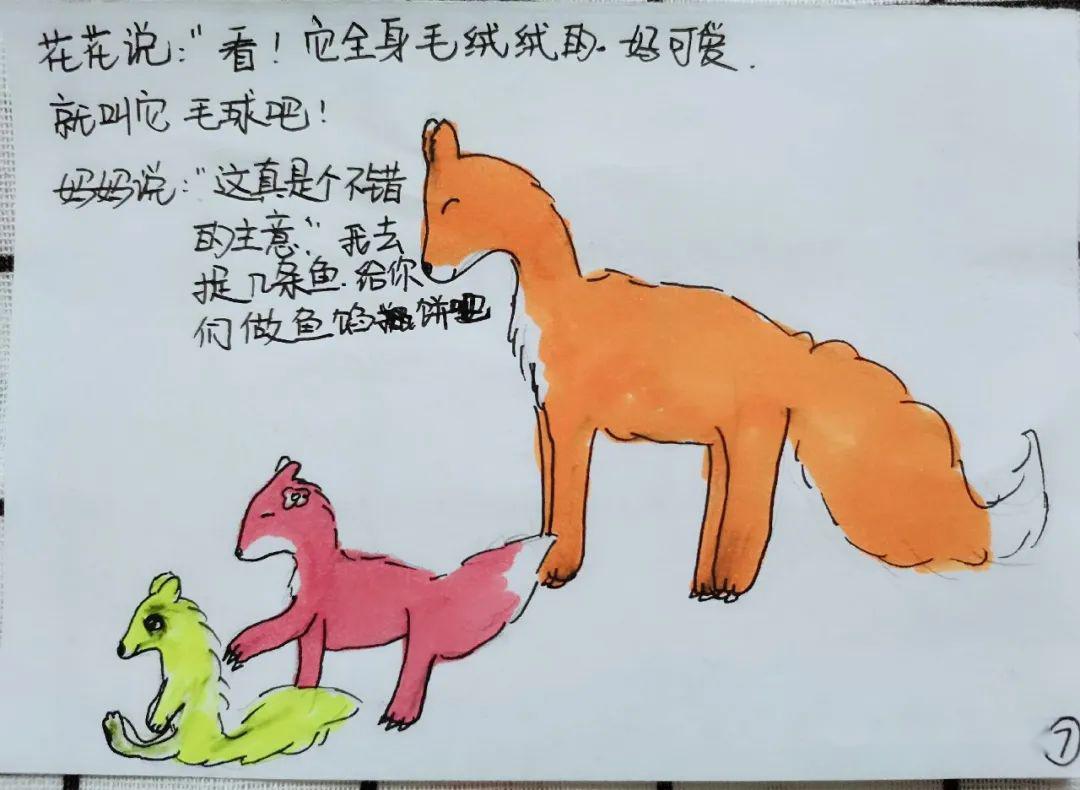 花花说:"看!它全身毛绒绒的.好可爱.
就叫它毛球吧!
妈妈说:"这真是个不错
的主意."我去
捉几条鱼.给你
们做鱼馅饼吧
7